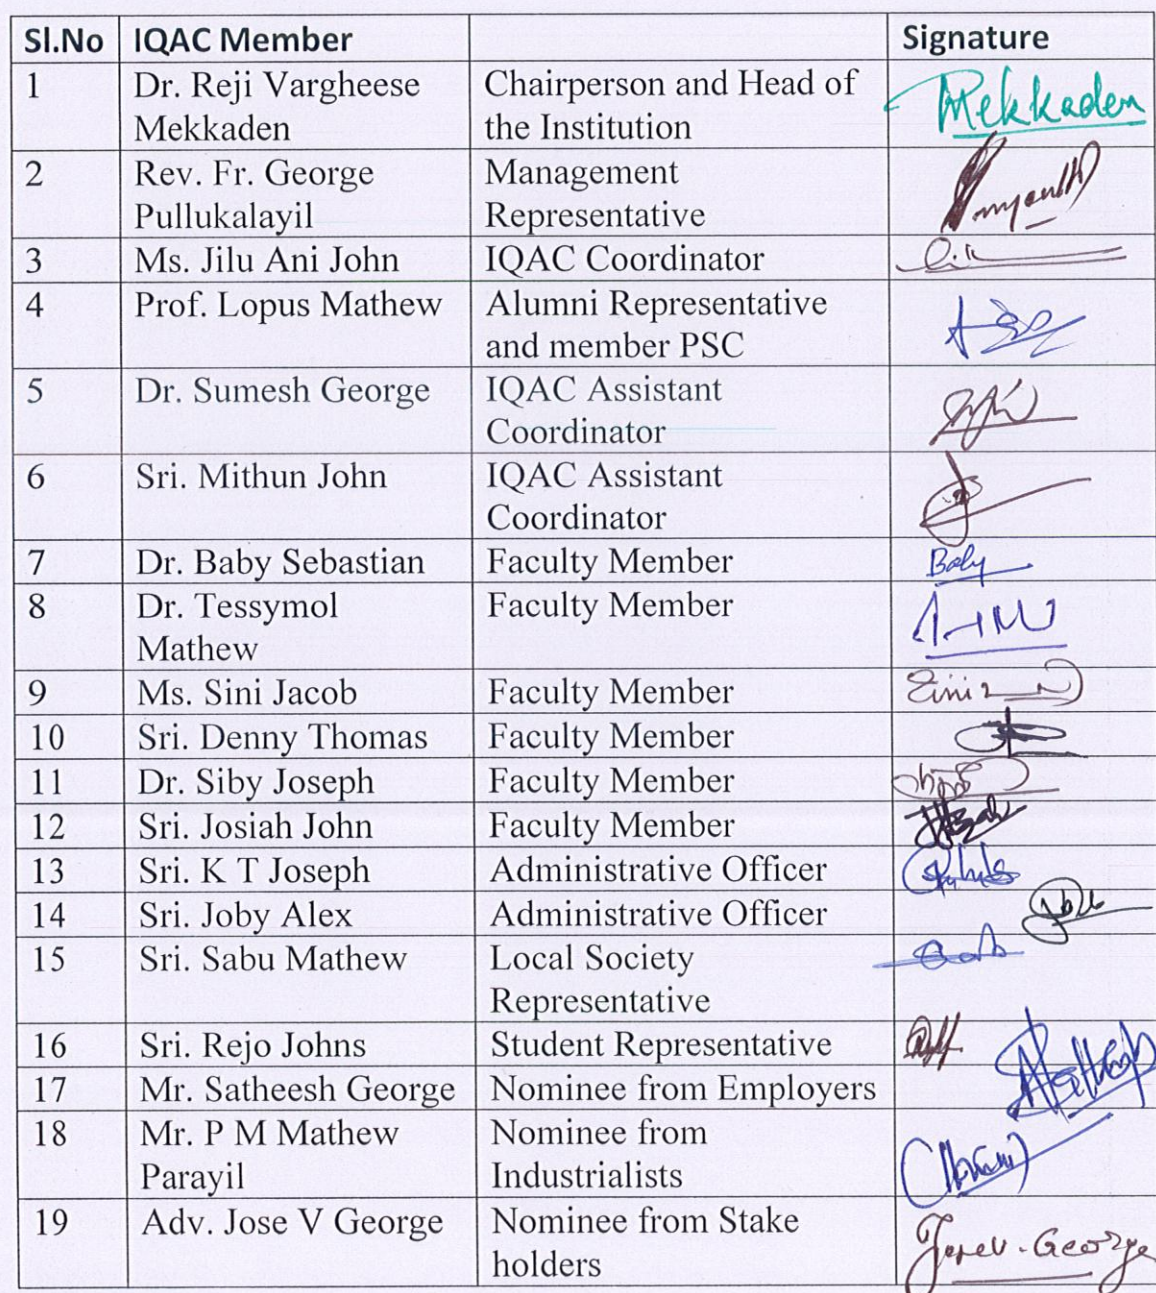 Sl.No IQAC Member Signature
1 Dr. Reji Vargheese Chairperson and Head of Mekkaden
Mekkaden the Institution
2 Rev. Fr. George Management
Pullukalayil Representative
3 Ms. Jilu Ani John IQAC Coordinator
4 Prof. Lopus Mathew Alumni Representative
and member PSC
5 Dr. Sumesh George IQAC Assistant
Coordinator
6 Sri. Mithun John IQAC Assistant
Coordinator
7 Dr. Baby Sebastian Faculty Member Baby
8 Dr. Tessymol Faculty Member
Mathew
9 Ms. Sini Jacob Faculty Member
10 Sri. Denny Thomas Faculty Member
11 Dr. Siby Joseph Faculty Member
12 Sri. Josiah John Faculty Member
13 Sri. K T Joseph Administrative Officer
14 Sri. Joby Alex Administrative Officer
15 Sri. Sabu Mathew Local Society
Representative
16 Sri. Rejo Johns Student Representative
17 Mr. Satheesh George Nominee from Employers
18 Mr. P M Mathew Nominee from
Parayil Industrialists
19 Adv. Jose V George Nominee from Stake
holders Josev. George